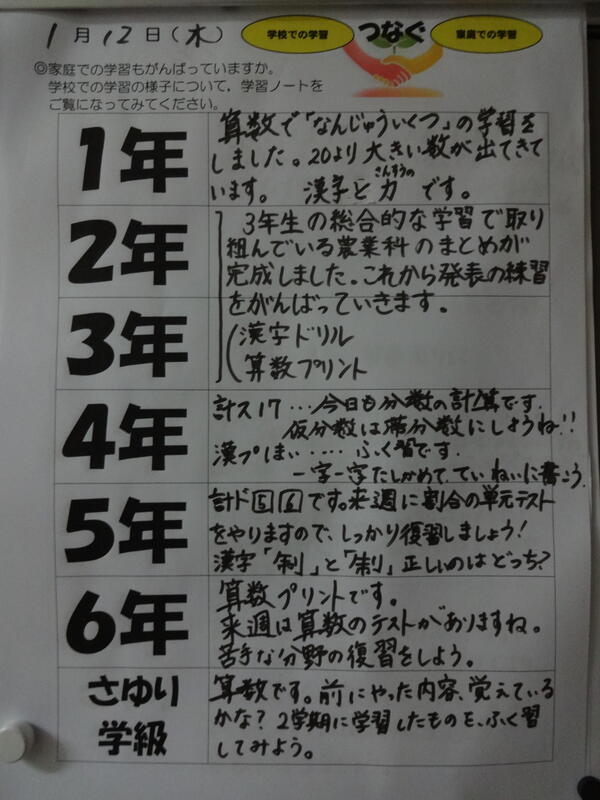 1月12日(木)
学校での学習 つなぐ 家庭での学習
◎家庭での学習もがんばっていますか。
学校での学習の様子について,学習ノートを
ご覧になってみてください。
1年
算数で「なんじゅういくつ」の学習を
しました。20より大きい数が出てきて
います。 漢字と力(さんすうの)です。
2年
3年
3年生の総合的な学習で取り
組んでいる農業科のまとめが
完成しました。これから発表の練習
をがんばっていきます。
漢字ドリル
算数プリント
4年
計ス17…今日も分数の計算です.
仮分数は帯分数にしようね!!
漢プ ……ふく習です.
一字一字たしかめて,ていねいに書こう.
5年
計ド⑤⑥です。来週に割合の単元テスト
をやりますので、しっかり復習しましょう!
漢字「制」と「制」正しいのはどっち?
6年
算数プリントです。
来週は算数のテストがありますね。
苦手な分野の復習をしよう。
さゆり
学級
算数です。前にやった内容、覚えている
かな? 2学期に学習したものを、ふく習
してみよう。